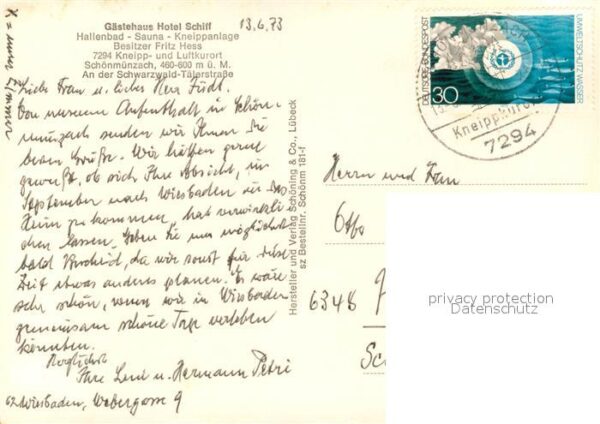 x = unser Zimmer
Gästehaus Hotel Schiff
Hallenbad - Sauna - Kneippanlage
Besitzer Fritz Hess
7294 Kneipp- und Luftkurort
Schönmünzach, 460-600 m ü. M.
An der Schwarzwald-Tälerstraße
13.6.73
Liebe Frau u. lieber Herr
Von unserem Aufenthalt in Schön-
münzach senden wir Ihnen die
besten Grüße. Wir hätten gerne
gewußt, ob sich Ihre Absicht, im
September nach Wiesbaden in das
Heim zu kommen, hat verwirkli-
chen lassen. Geben Sie uns möglichst
bald Bescheid, da wir sonst für diese
Zeit etwas anderes planen. Es wäre
sehr schön, wenn wir in Wiesbaden
gemeinsam schöne Tage verleben
könnten.
Herzlichst
Ihre Leni u. Hermann Petri
62 Wiesbaden, Webergasse 9
Hersteller und Verlag Schöning & Co., Lübeck
sz Bestellnr. Schönm 181-f
DEUTSCHE BUNDESPOST
UMWELTSCHUTZ WASSER
30
Kneippkurort
7294
Herrn und Frau
Otto
6348
privacy protection
Datenschutz